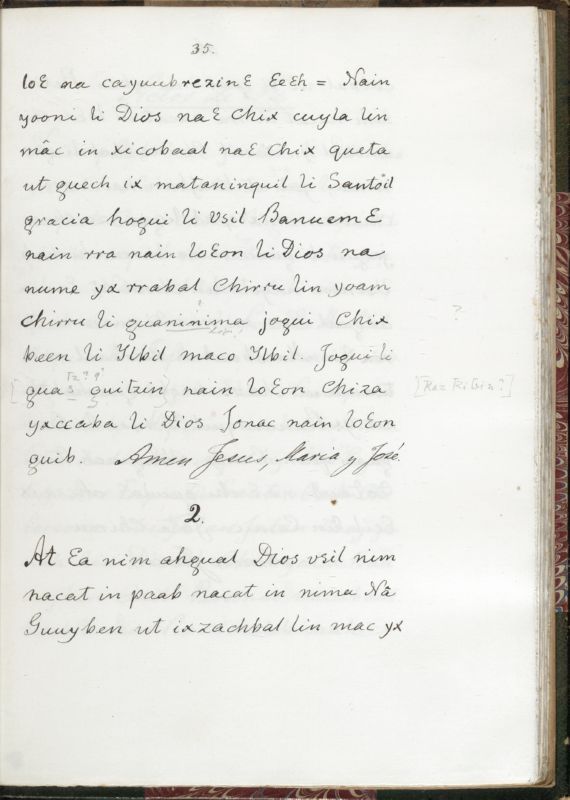 35.
loƐ na cayuubrezinƐ EeEh = Nain
yooni li Dios naƐ Chix cuyla lin
mâc in xicobaal naƐ Chix queta
ut quech ix mataninquil li Santòil
gracia hoqui li vsil BanuemƐ
nain rra nain loƐon li Dios na
nume yx rrabal Chirru lin yoam
?
Chirru li quaninima joqui Chix
been li Ylbil maco Ylbil. Joqui li
quas quitzin nain loƐon Chiza
yxccaba li Dios Jonac nain loƐon
quib. Amen Jesus, Maria y José.
2.
At Ea nim ahqual Dios vsil nim
nacat in paab nacat in nima Nâ
Guuyben ut ixzachbal lin mac yx